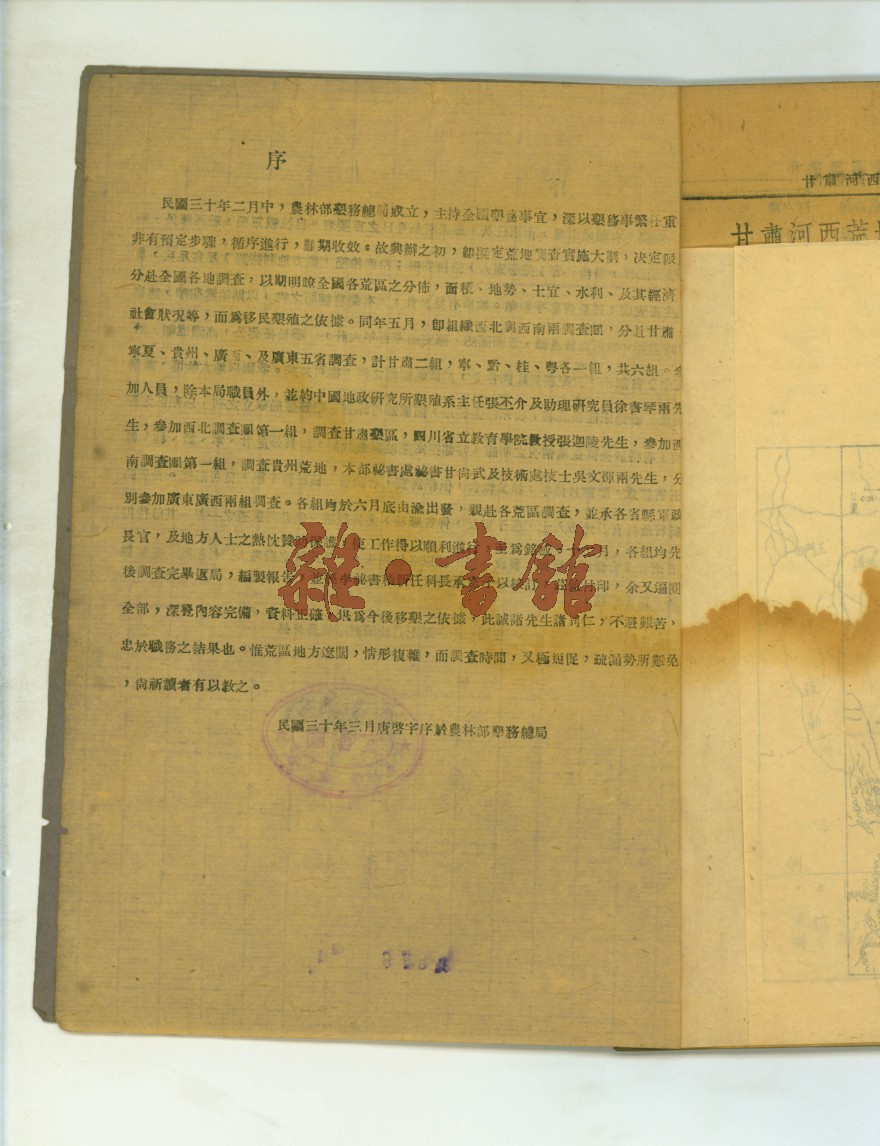 序
民國三十年二月中，農林部墾務總局成立，主持全國墾務事宜，深以墾務事繁任重
非有預定步驟，循序進行，難期收效。故興辦之初，卽擬定荒地調查實施大綱，决定
分赴全國各地調查，以期明瞭全國各荒區之分佈，面積、地勢、土宜、水利、及其經濟
社會狀况等，而爲移民墾殖之依據。同年五月，卽組織西北與西南兩調查團，分赴甘肅
寧夏、貴州、廣西、及廣東五省調查，計甘肅二組，寧、黔、桂、粤各一組，共六組。
加人員，除本局職員外，並約中國地政研究所墾殖系主任張丕介及助理研究員徐書琴兩先
生，參加西北調查團第一組，調查甘肅墾區，四川省立教育學院教授張迦陵先生，參加西
南調查團第一組，調查貴州荒地，本部祕書處祕書甘尙武及技術處技士吳文暉兩先生，分
別參加廣東廣西兩組調查。各組均於六月底由渝出發，親赴各荒區調查，並承各省縣軍政
長官，及地方人士之熱忱贊助保護，使工作得以順利進行，至爲銘感。十 月，各組均先
後調查完畢返局，編製報告，並 祕書 新任科長承 予以 付印，余又逼閱
全部，深覺內容完備，資料正確，堪爲今後移墾之依據，此誠諸先生諸同仁，不避艱苦、
忠於職務之結果也。惟荒區地方遼闊，情形複雜，而調查時間，又極短促，疏漏勢所難免
，尙祈讀者有以教之。
民國三十年三月唐啓宇序於農林部墾務總局
雜·書館
甘肅河西
甘肅河西荒地